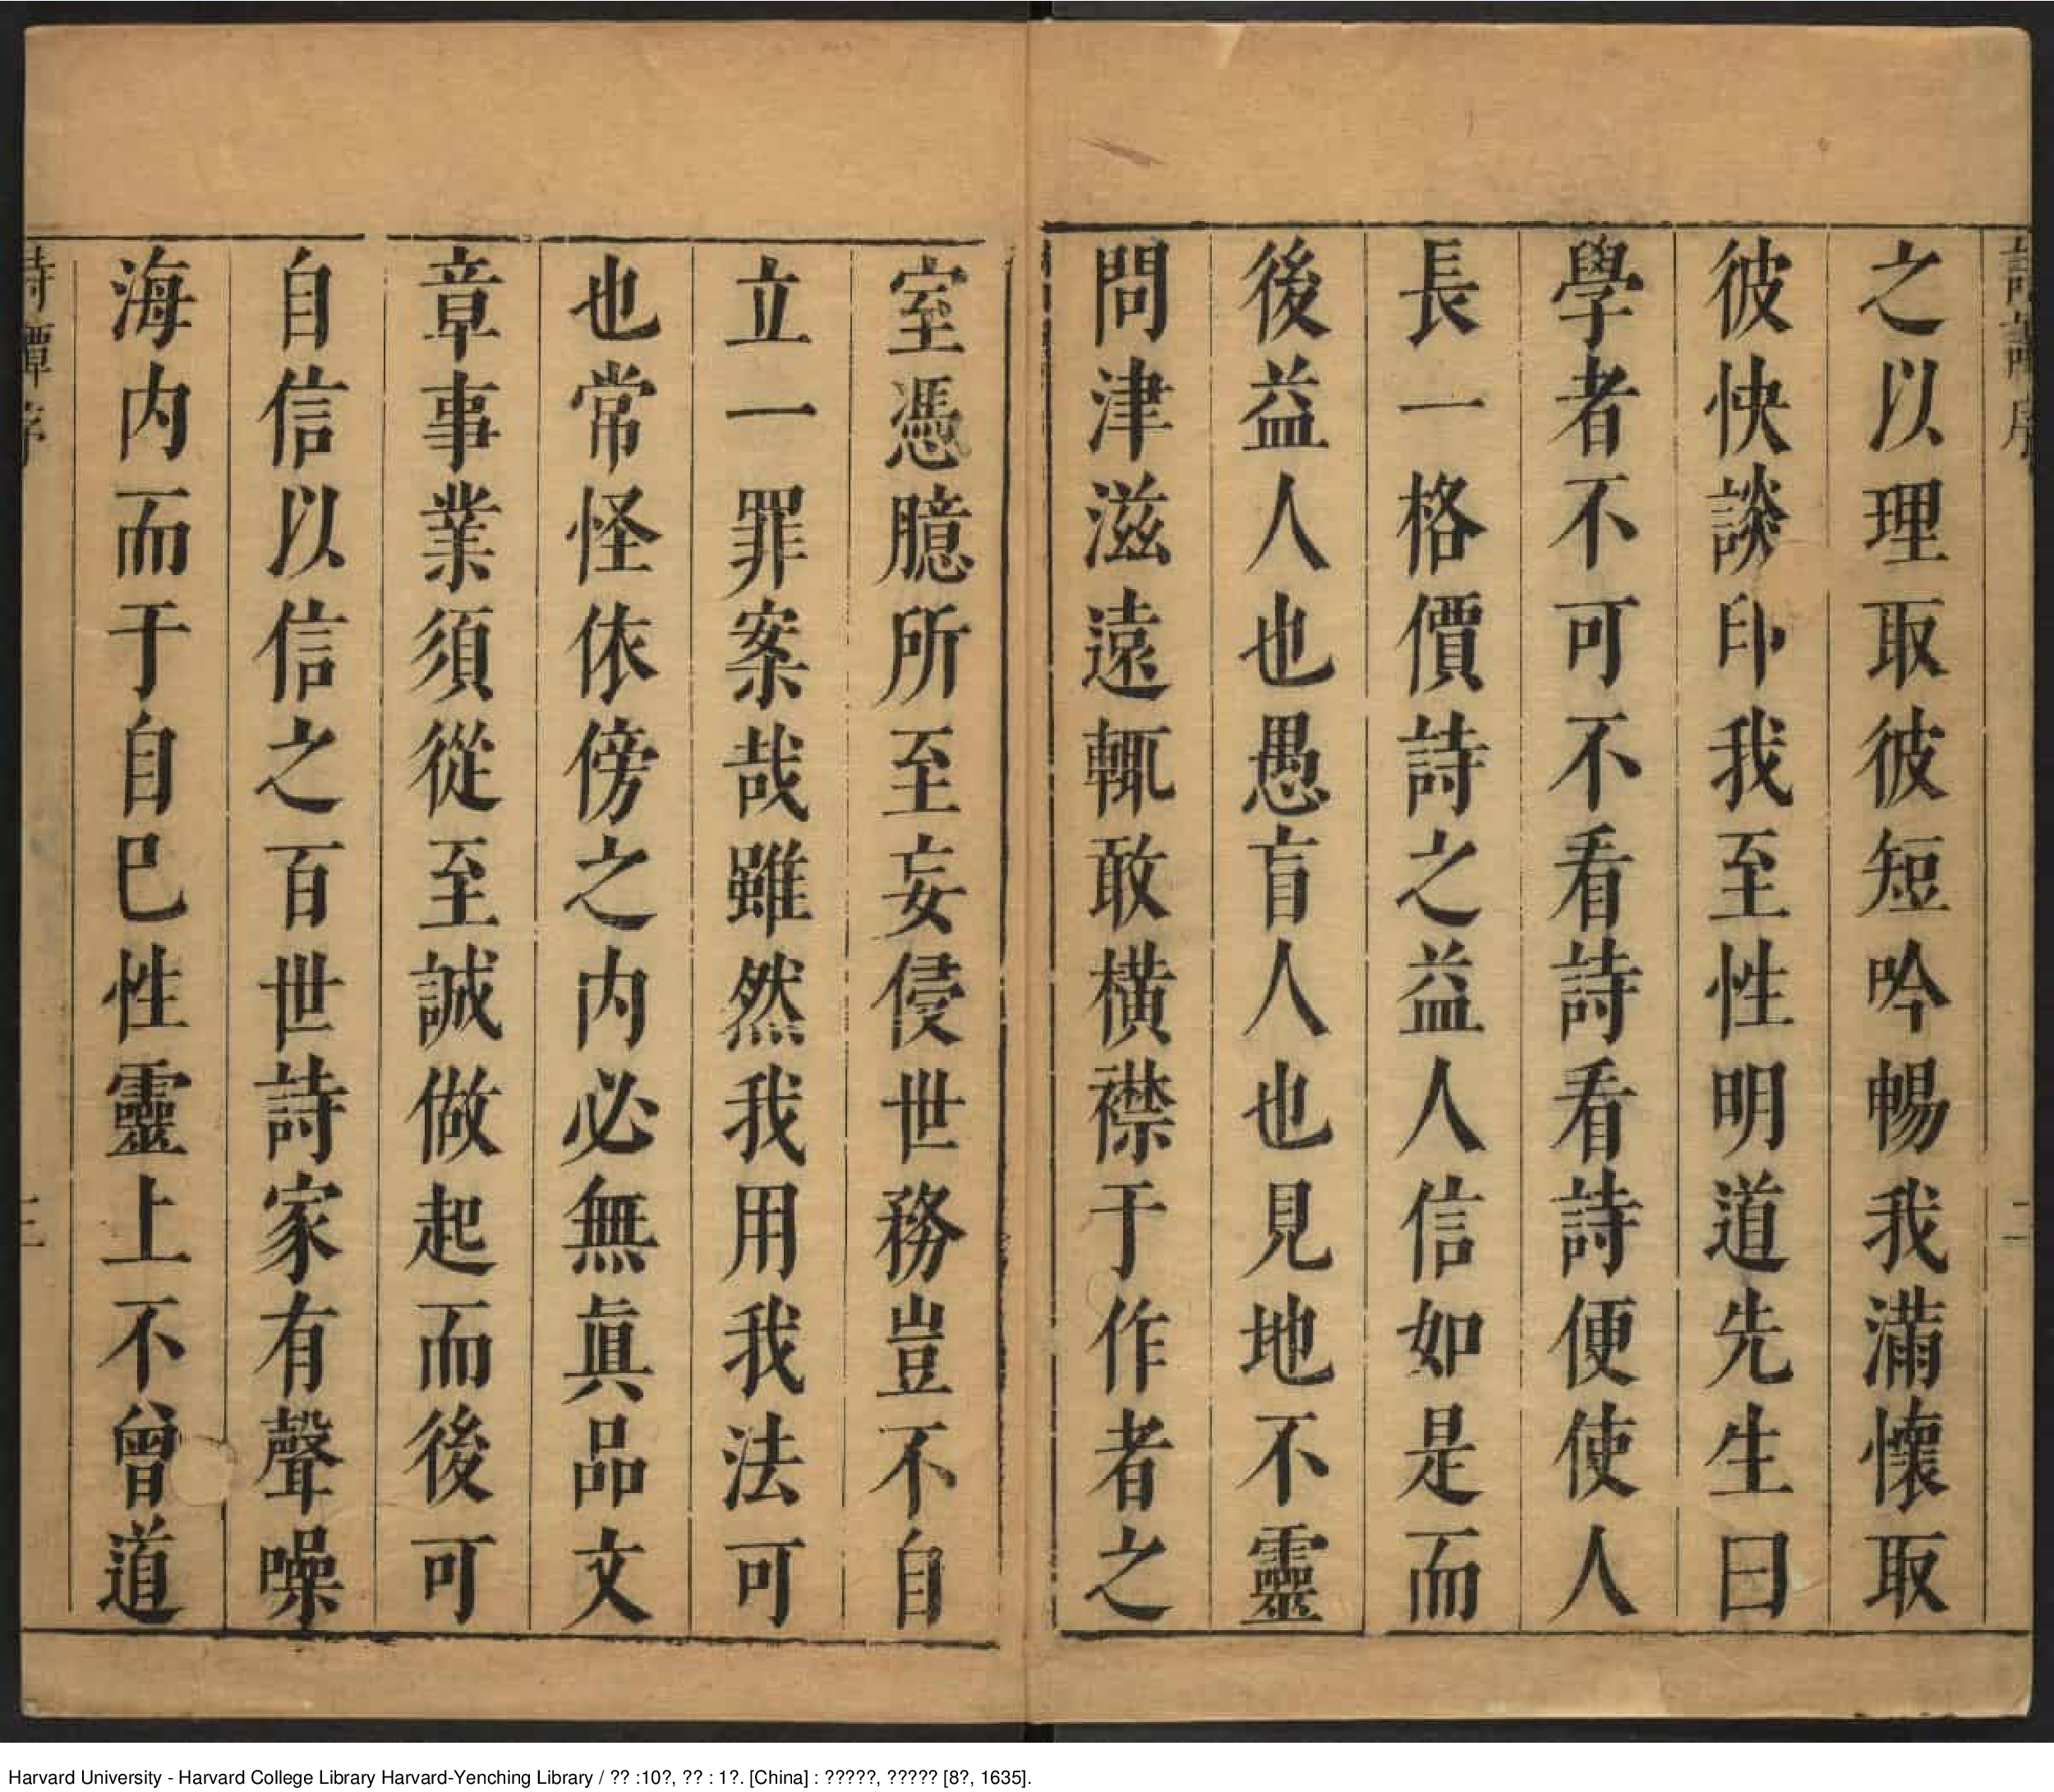 之以理取彼短吟暢我滿懷取
彼快談印我至性明道先生曰
學者不可不看詩看詩便使人
長一格價詩之益人信如是而
後益人也愚盲人也見地不靈
問津滋遠輒敢橫襟于作者之
室憑臆所至妄侵世務豈不自
立一罪案哉雖然我用我法可
也常怪依傍之内必無眞品文
章事業須從至誠做起而後可
自信以信之百世詩家有聲噪
海内而于自巳性靈上不曾道
詩譚序
三
二
Harvard University - Harvard College Library Harvard-Yenching Library / ?? :10?, ?? : 1?. [China] : ?????, ????? [8?, 1635].